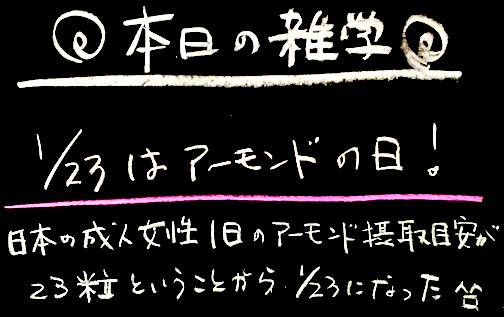 本日の雑学
1/23はアーモンドの日!
日本の成人女性1日のアーモンド摂取目安が
23粒ということから1/23になった